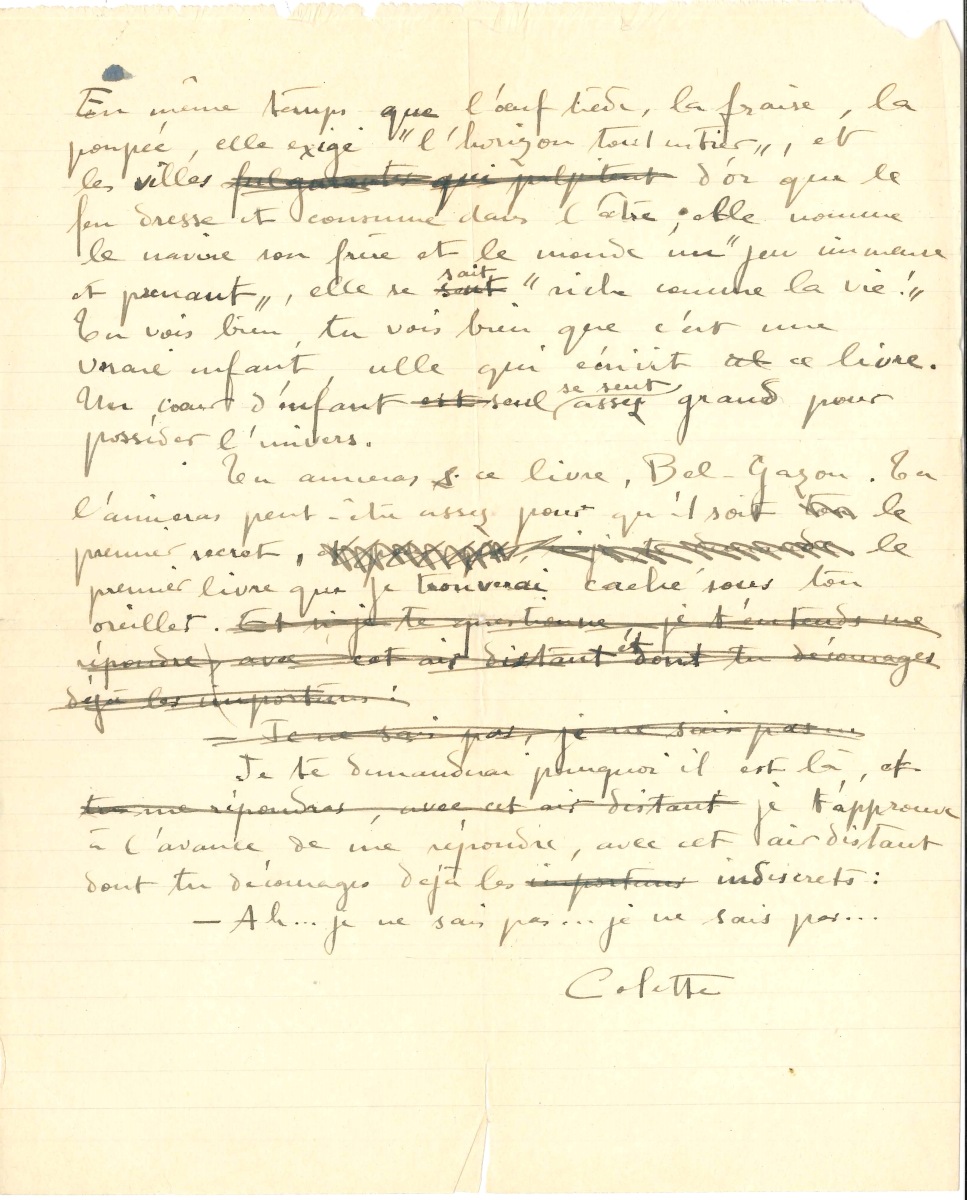 En même temps que l'œuf tiède, la fraise, la
poupée, elle exige "l'horizon tout entier", et
les villes fulgurantes qui palpitent d'or que le
feu dresse et consume dans l'âtre ; elle nomme
le navire son frère et le monde un "jeu immense
et prenant", elle se sent sait "riche comme la vie!"
Tu vois bien, tu vois bien que c'est une
vraie enfant, celle qui écrivit ce livre.
Un cœur d'enfant est seul se sent assez grand pour
posséder l'univers.
Tu aimeras ce livre, Bel-Gazou. Tu
l'aimeras peut-être assez pour qu'il soit ton le
premier secret, le
premier livre que je trouverai caché sous ton
oreiller. Et si je te questionne, je t'entends me
répondre, avec cet air distant et dont tu décourages
déjà les importuns :
— Je ne sais pas, je ne sais pas...
Je te demanderai pourquoi il est là, et
tu me répondras, avec cet air distant je t'approuve
à l'avance de me répondre, avec cet air distant
dont tu décourages déjà les importuns indiscrets :
— Ah... je ne sais pas... je ne sais pas...
Colette